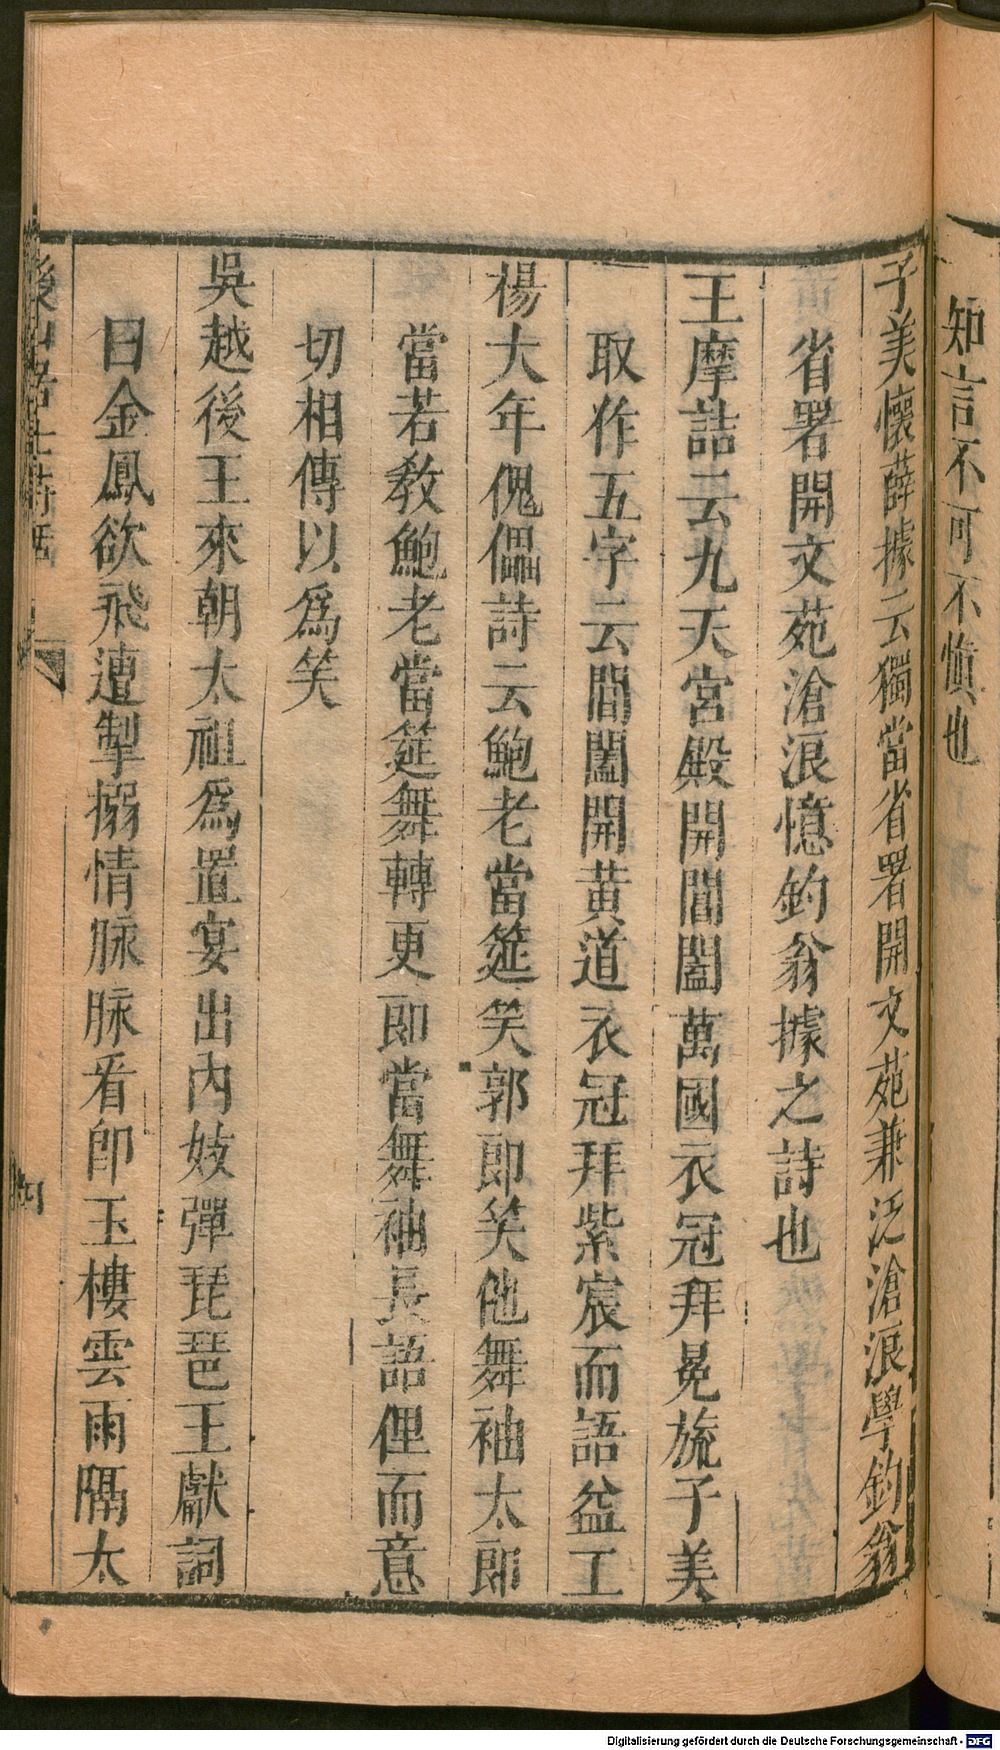 知言不可不愼也
子美懷薛據云獨當省署開文苑兼泛滄浪學釣翁
省署開文苑滄浪憶釣翁據之詩也
王摩詰云九天宮殿開閶闔萬國衣冠拜冕旒子美
取作五字云閶闔開黃道衣冠拜紫宸而語益工
楊大年傀儡詩云鮑老當筵笑郭郎笑他舞袖太郎
當若教鮑老當筵舞轉更郎當舞袖長語俚而意
切相傳以爲笑
吳越後王來朝太祖爲置宴出內妓彈琵琶王獻詞
曰金鳳欲飛遭掣搦情脉脉看卽玉樓雲雨隔太
後山居士詩話
四
Digitalisierung gefördert durch die Deutsche Forschungsgemeinschaft - DFG